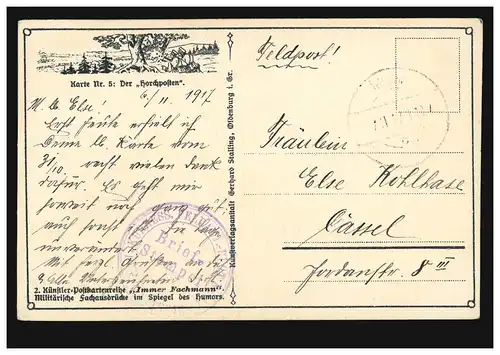 Karte Nr. 5: Der „Horchposten".
6/11. 1917
M. lb. Else!
Erst heute erhielt ich
Deine lb. Karte vom
31/10. recht vielen Dank
dafür. Es geht mir
soweit noch ganz gut,
auch sonst
unverändert.
Mit herzl. Grüßen
Briefs
2. Künstler-Postkartenreihe „Immer Fachmann".
Militärische Fachausdrücke im Spiegel des Humors.
Kunstverlagsanstalt Gerhard Stalling, Oldenburg i. Gr.
Feldpost!
Fräulein
Else Kohlhase
Cassel
Jordanstr. 8 III